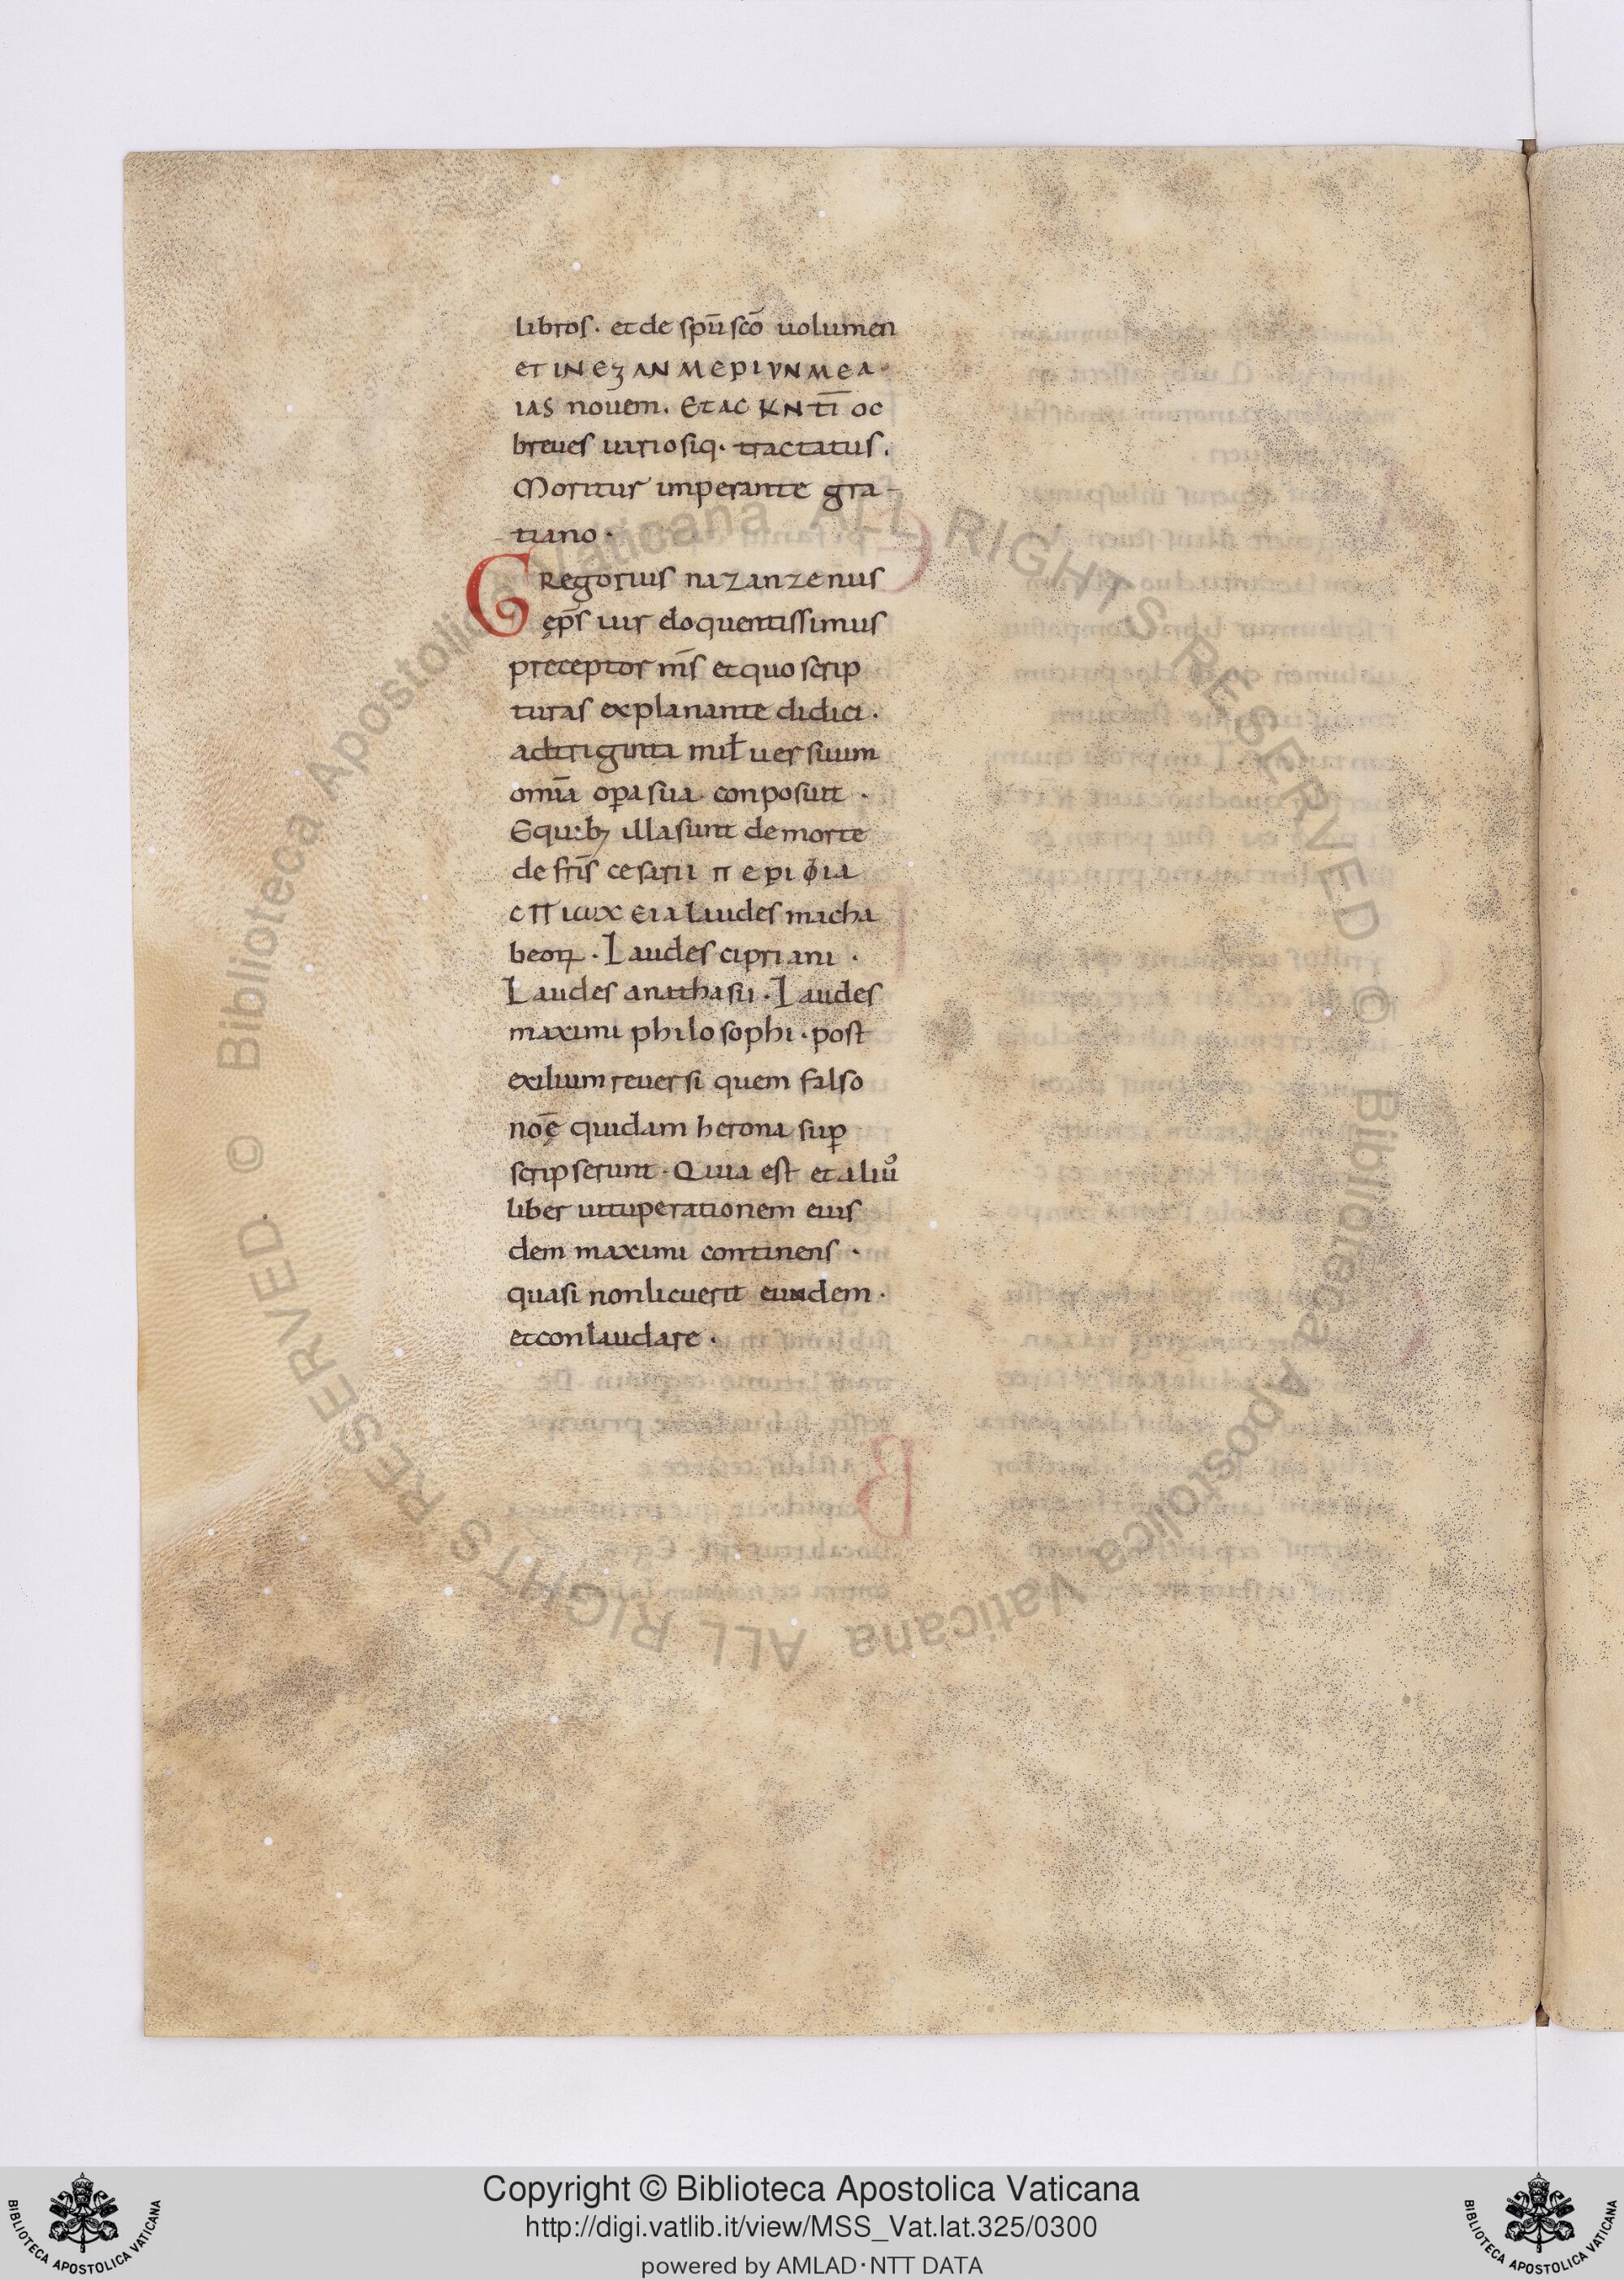 libros · et de sp̄u sc̄o uolumen
et IN EȝANMEPIVNMEA·
IAS nouem . Et ac KN tī oc
breues uariosiq· tractatus .
Moritur imperante gra-
tiano ·
Gregorius nazanzenus
ęp̄s uir eloquentissimus
preceptor m̄s et quo scrip
turas explanante didici ·
ad triginta mil̄ uersuum
omīa op̄a sua conposuit ·
Equib; illa sunt de morte
de fr̄is cesarii π ε ρι φια
cπιωχ εια laudes macha
beoꝝ · Laudes cipriani ·
Laudes anathasii · Laudes
maximi philosophi · post
exilium reuersi quem falso
no̅ę quidam herona sup̄
scripserunt · Quia est et aliu᷒
liber uituperationem eius
dem maximi continens ·
quasi non licuerit eundem ·
et conlaudare ·
© Biblioteca Apostolica Vaticana ALL RIGHTS RESERVED
© Biblioteca Apostolica Vaticana ALL RIGHTS RESERVED
Copyright © Biblioteca Apostolica Vaticana
http://digi.vatlib.it/view/MSS_Vat.lat.325/0300
powered by AMLAD·NTT DATA
BIBLIOTECA APOSTOLICA VATICANA
BIBLIOTECA APOSTOLICA VATICANA